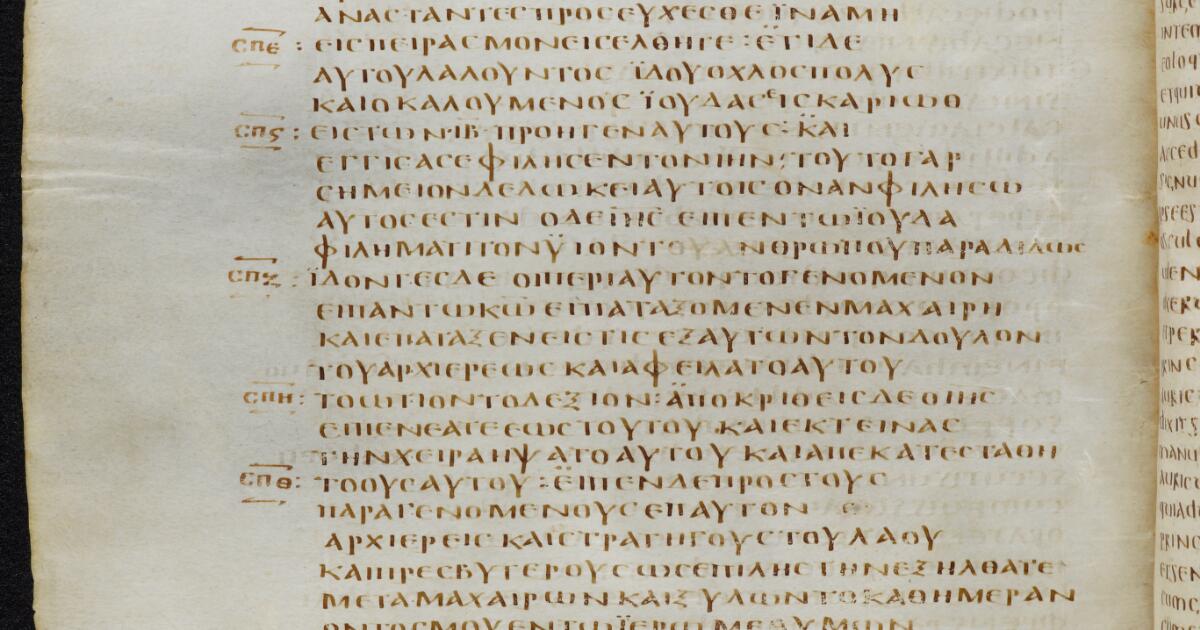 ΑΝΑϹΤΑΝΤΕϹΠΡΟϹΕΥΧΕϹΘΕΪΝΑΜΗ
ϹΠΕ : ΕΙϹΠΕΙΡΑϹΜΟΝΕΙϹΕΛΘΗΤΕ : ΕΤΙΔΕ
ΑΥΤΟΥΛΑΛΟΥΝΤΟϹ ΪΔΟΥΟΧΛΟϹΠΟΛΥϹ
ΚΑΙΟΚΑΛΟΥΜΕΝΟϹ ΪΟΥΔΑϹΕΙϹΚΑΡΙΩΘ
ϹΠϚ : ΕΙϹΤΩΝ·ΙΒ·ΠΡΟΗΓΕΝΑΥΤΟΥϹ : ΚΑΙ
ΕΓΓΙϹΑϹΕΦΙΛΗϹΕΝΤΟΝΙΗΝ : ΤΟΥΤΟΓΑΡ
ϹΗΜΕΙΟΝΔΕΔΩΚΕΙΑΥΤΟΙϹΟΝΑΝΦΙΛΗϹΩ
ΑΥΤΟϹΕϹΤΙΝ ΟΔΕΙΗϹ ΕΙΠΕΝΤΩΪΟΥΔΑ
ΦΙΛΗΜΑΤΙΤΟΝΥΙΟΝΤΟΥΑΝΘΡΩΠΟΥΠΑΡΑΔΙΔΩϹ
ϹΠΖ : ΪΔΟΝΤΕϹΔΕ ΟΙΠΕΡΙΑΥΤΟΝΤΟΓΕΝΟΜΕΝΟΝ
ΕΙΠΑΝΤΩΚΩ ΕΙΠΑΤΑΞΟΜΕΝΕΝΜΑΧΑΙΡΗ
ΚΑΙΕΠΑΤΑΞΕΝΕΙϹΤΙϹΕΞΑΥΤΩΝΤΟΝΔΟΥΛΟΝ
ΤΟΥΑΡΧΙΕΡΕΩϹΚΑΙΑΦΕΙΛΑΤΟΑΥΤΟΥ
ϹΠΗ : ΤΟΩΤΙΟΝΤΟΔΕΞΙΟΝ : ΑΠΟΚΡΙΘΕΙϹΔΕΟΙΗϹ
ΕΙΠΕΝΕΑΤΕΕΩϹΤΟΥΤΟΥ ΚΑΙΕΚΤΕΙΝΑϹ
ΤΗΝΧΕΙΡΑΗΨΑΤΟΑΥΤΟΥΚΑΙΑΠΕΚΑΤΕϹΤΑΘΗ
ϹΠΘ : ΤΟΟΥϹΑΥΤΟΥ : ΕΙΠΕΝΔΕΠΡΟϹΤΟΥϹ
ΠΑΡΑΓΕΝΟΜΕΝΟΥϹΕΠΑΥΤΟΝ
ΑΡΧΙΕΡΕΙϹΚΑΙϹΤΡΑΤΗΓΟΥϹΤΟΥΛΑΟΥ
ΚΑΙΠΡΕϹΒΥΤΕΡΟΥϹΩϹΕΠΙΛΗϹΤΗΝΕΞΗΛΘΑΤΕ
ΜΕΤΑΜΑΧΑΙΡΩΝΚΑΙΞΥΛΩΝΤΟΚΑΘΗΜΕΡΑΝ
ΟΝΤΟϹΜΟΥΕΝΤΩΪΕΡΩΜΕΘΥΜΩΝ